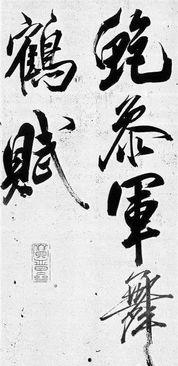 鮑參軍舞
鶴賦